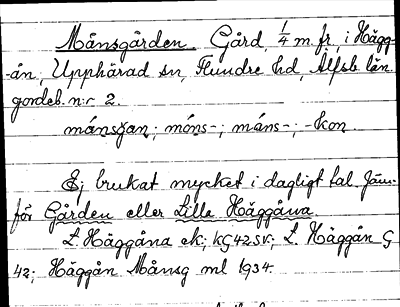 Månsgården. Gård, 1/4 m. fr. i Hägg-
-ån, Upphärad sn, Flundre hd, Älfsb. län.
gordeb. n:r 2.
månsgan; móns-; máns-; -kon.
Ej brukat mycket i dagligt tal. Jäm-
för Gården eller Lilla Häggåna
L. Häggåna ek; kG42SV; L. Häggån G
42; Häggån Månsg ml 1934.